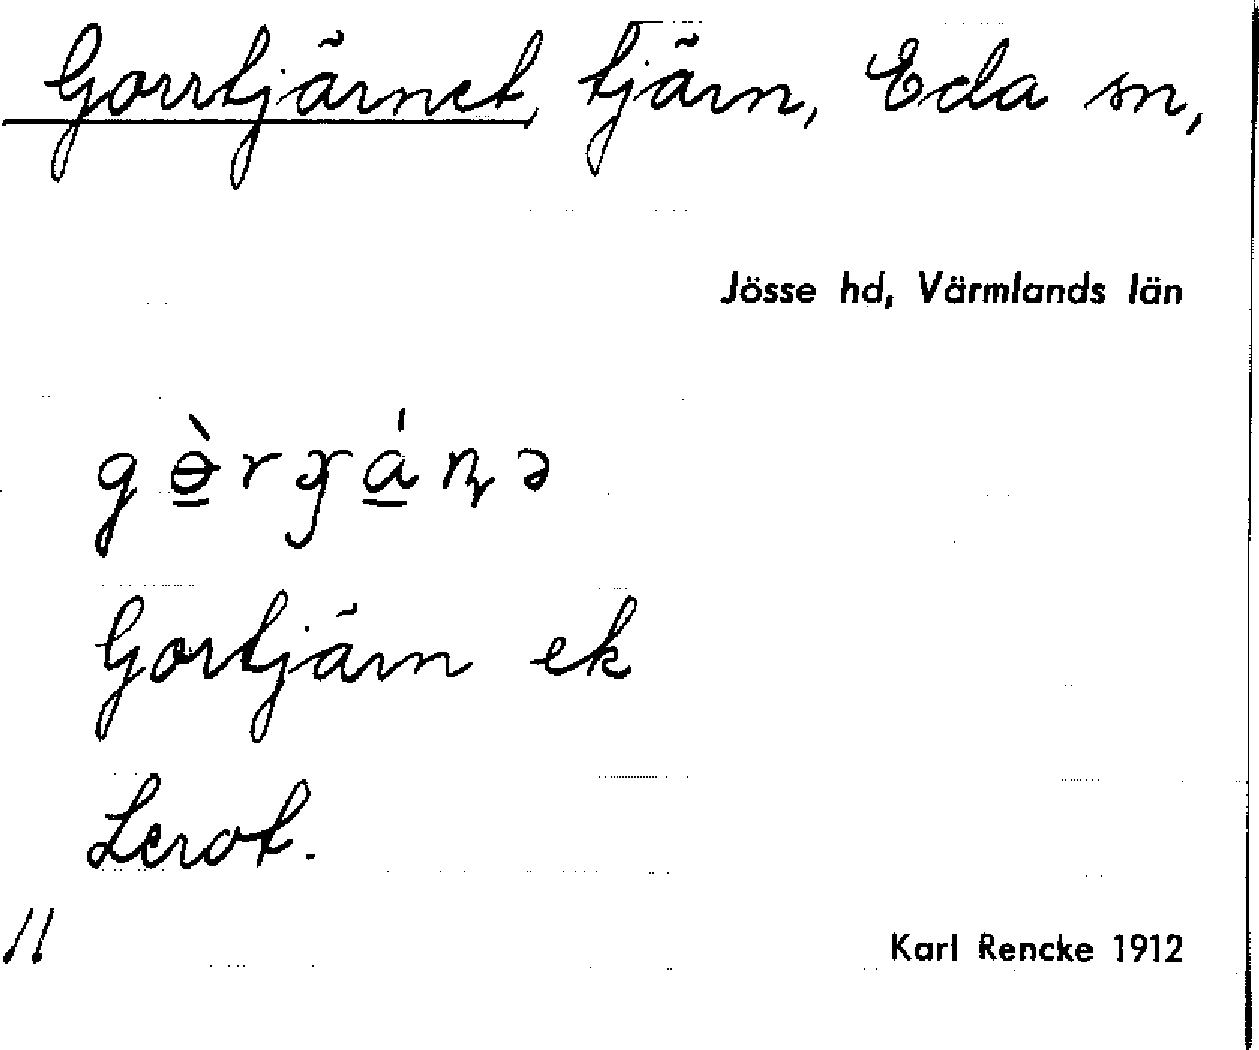 Gorrtjärnet, tjärn, Eda sn,
Jösse hd, Värmlands län
Gortjärn ek
Lerot.
11
Karl Rencke 1912